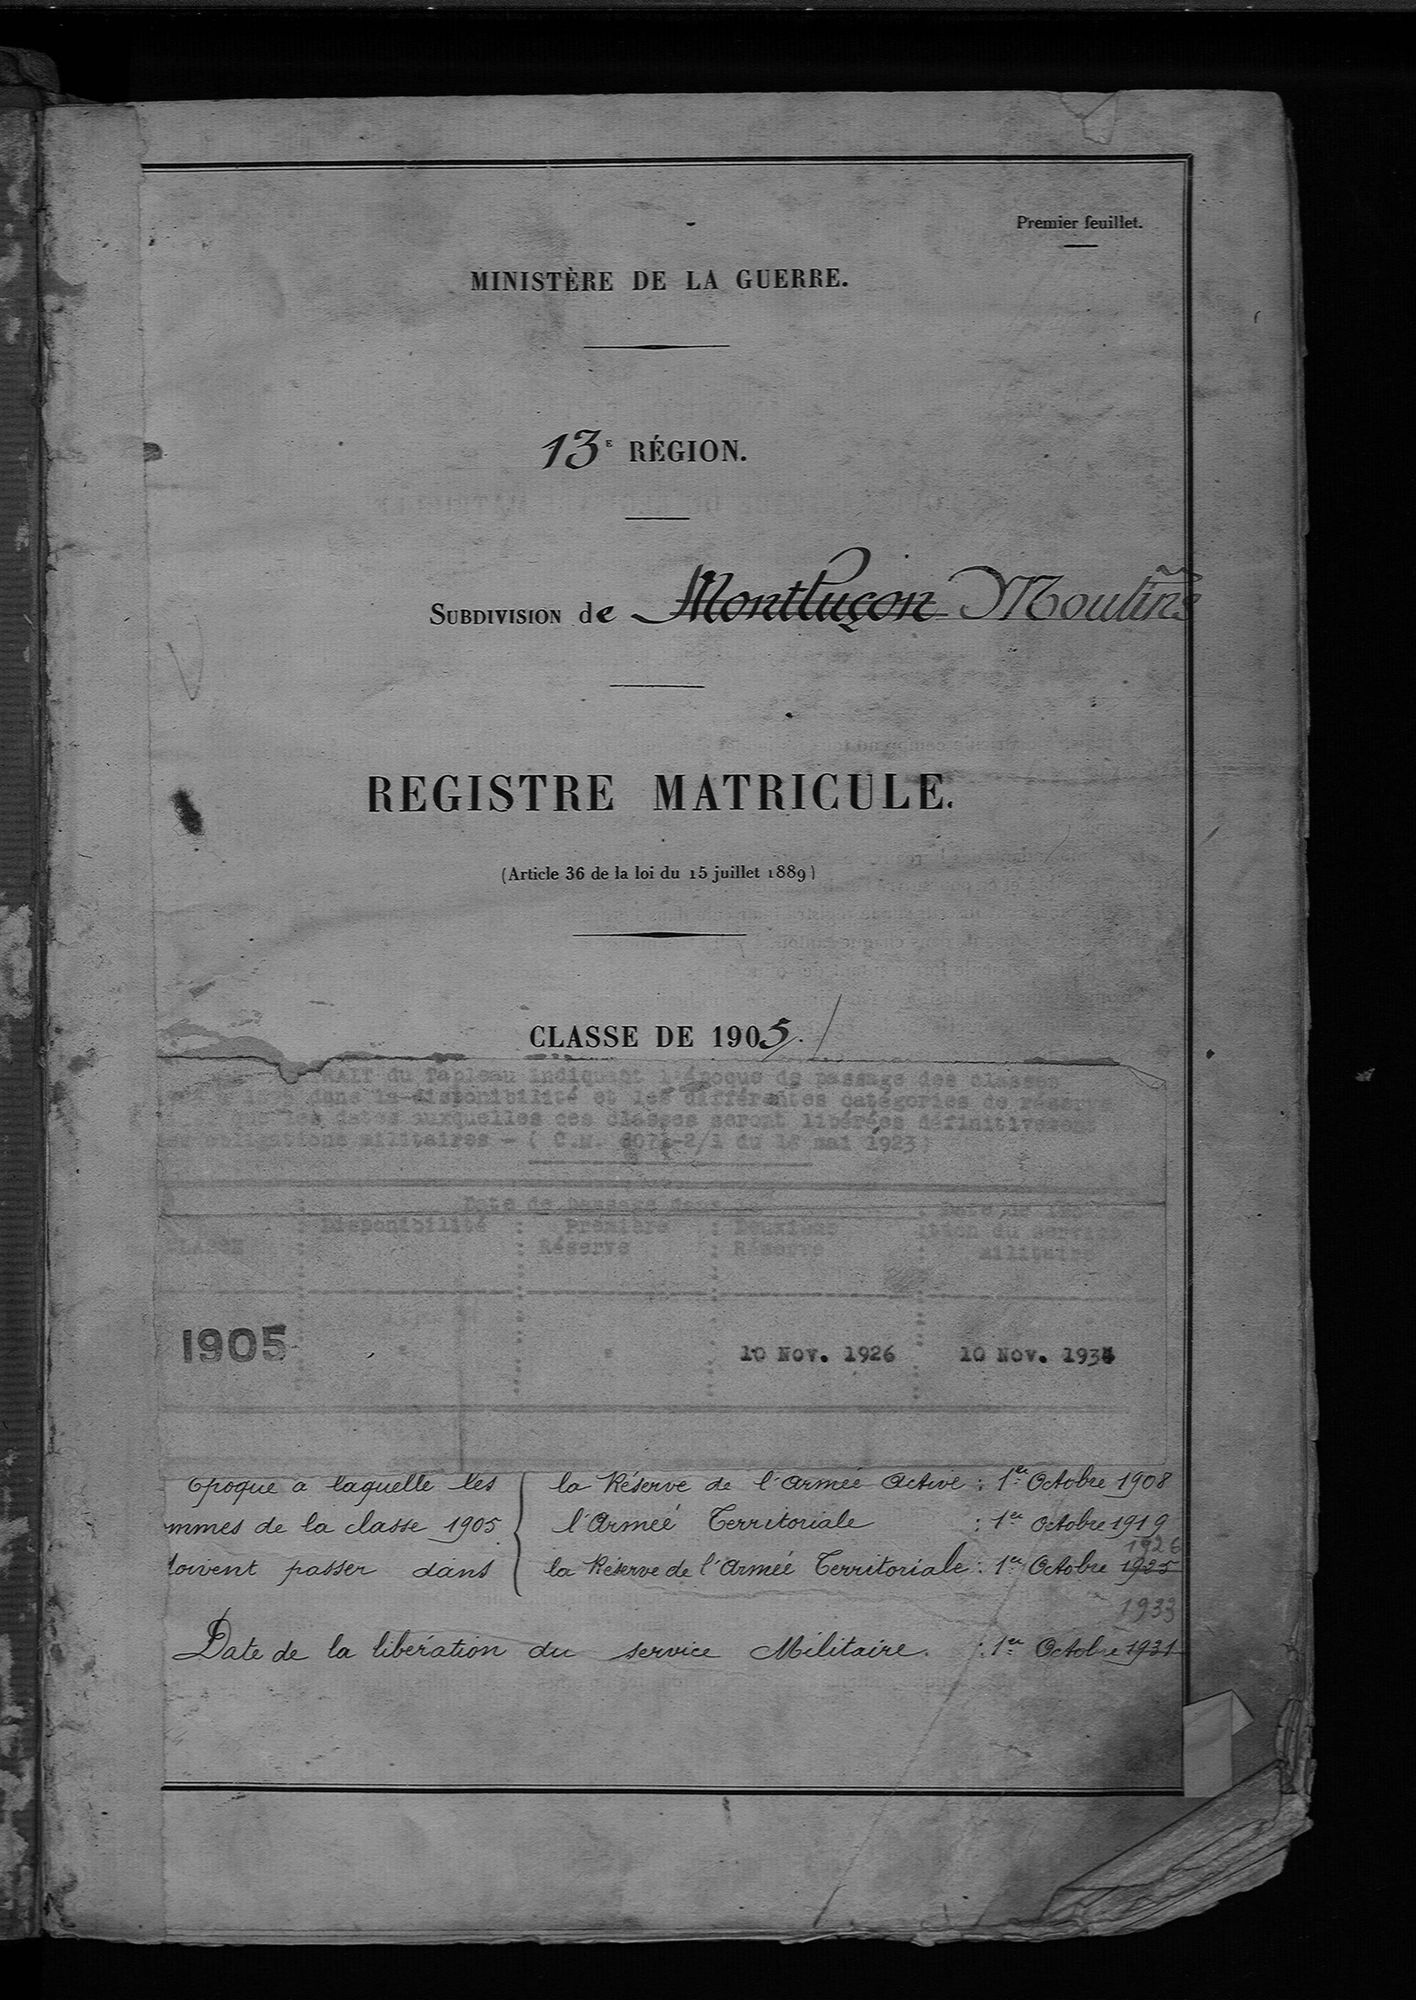 Premier feuillet.
MINISTÈRE DE LA GUERRE.
13E RÉGION.
SUBDIVISION de Montluçon Moulins
REGISTRE MATRICULE.
(Article 36 de la loi du 15 juillet 1889)
CLASSE DE 1905.
RAIT du Tableau indiquant l'époque de passage des classes
dans la disponibilité et les différentes catégories de réserve
que les dates auxquelles ces classes seront libérées définitivement
obligations militaires - ( C.M. 2/1 du 18 mai 1923)
Date de passage dans
Disponibilité : Première : Deuxième : ition du service
CLASSE : : Réserve : Réserve : militaire
1905 " " 10 Nov. 1926 10 Nov. 1934
Epoque à laquelle les la Réserve de l'Armée Active : 1er Octobre 1908
mmes de la classe 1905 l'Armée Territoriale : 1er Octobre 1919
1926
doivent passer dans la Réserve de l'Armée Territoriale : 1er Octobre 1925
1933
Date de la libération du service Militaire. : 1er Octobre 1931